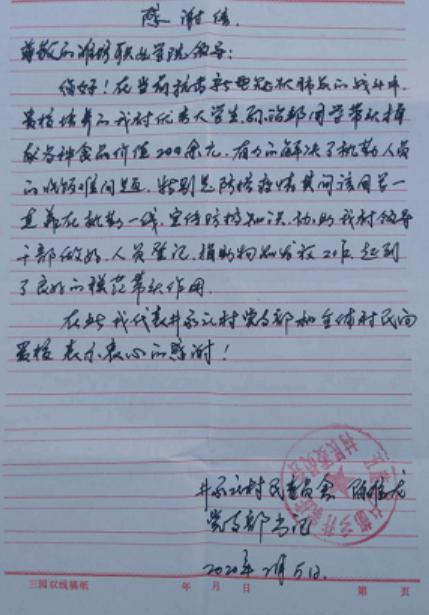 感谢信
尊敬的潍坊职业学院领导:
你好!在当前抗击新型冠状肺炎的战斗中,
贵校培养的我村优秀大学生,同学带头捐
献各种食品价值200余元,有力的解决了执勤人员
的吃饭难问题.特别是防控疫情其间该同学一
直都在执勤一线,宣传防控知识,协助我村领导
干部做好,人员登记,捐助物品发放工作起到
了良好的模范带头作用.
在此我代表井家沟村党支部和全体村民向
贵校表示衷心的感谢!
村民委员会
党支部书记
2020年2月5日.
三园双线稿纸 年 月 日 第 页